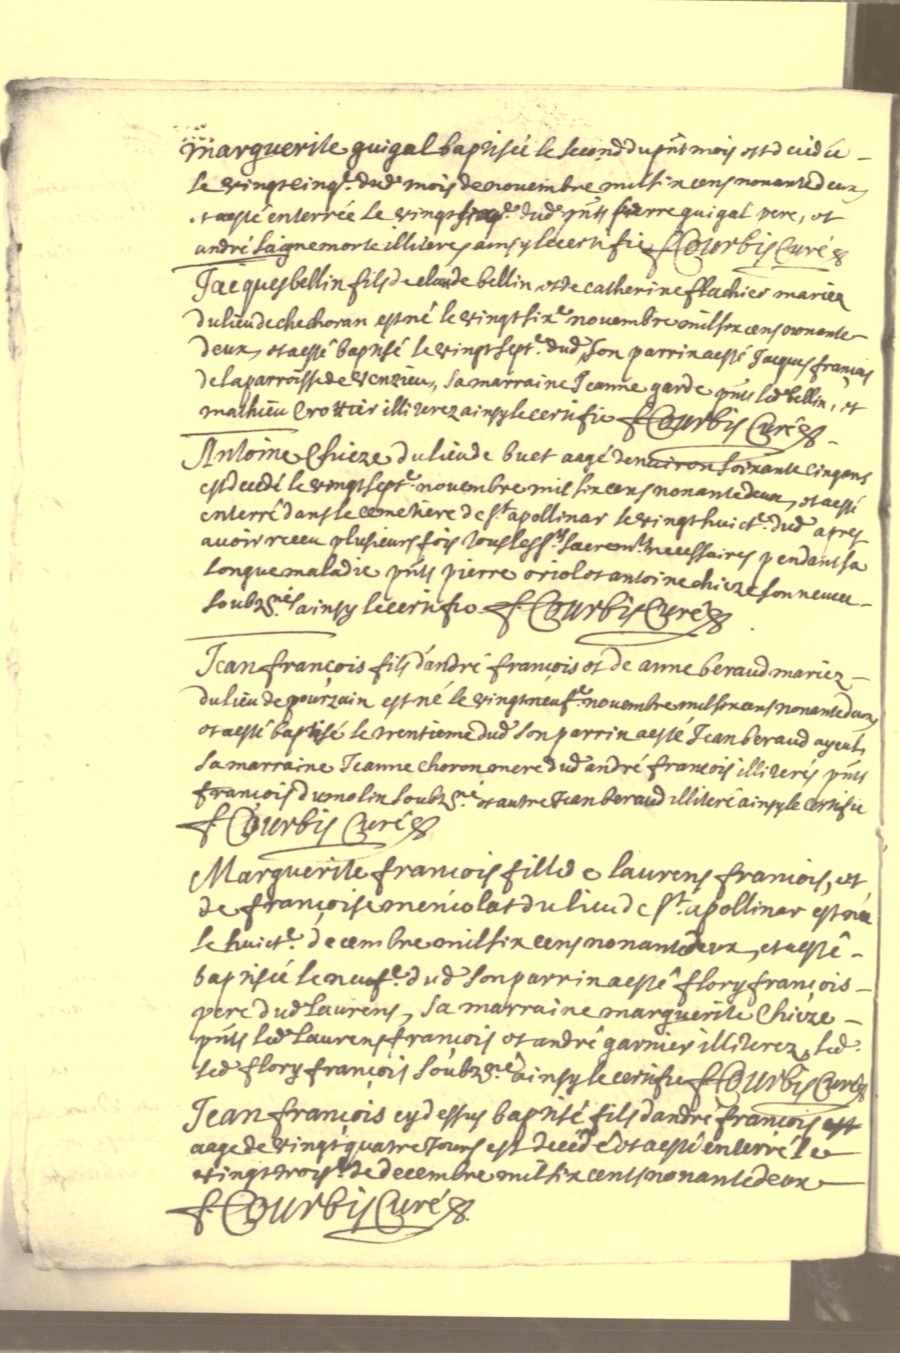 marguerite guigal baptisée le second du pnt mois est decedée
le vingtcinqe. dud mois de novembre mil six cens nonante deux,
et a esté enterrée le dud pnts pierre guigal pere, et
andré saignemorte illiteres ainsy le certifie F Courbis Curé
Jacques bellin fils de claude bellin, et de catherine flachier mariez
du lieu de chechoran est né le vingt sixe novembre mil six cens nonante
deux, et a esté baptisé le vingt septe. dud, son parrin a esté Jacques françois
de la parroisse de venzieu, sa marraine Jeanne garde pnts led bellin, et
mathieu Crottier illiterez ainsy le certifie F Courbis Curé
Antoine Chieze du lieu de buet aagé denviron soixante cinq ans
est decedé le vingt septe. novembre mil six cens nonante deux, et a esté
enterré dans le cemetiere de St. apollinar le vingt huicte. dud apres
avoir receu plusieurs fois tous les Sts sacremts necessaires pendant sa
longue maladie pnts pierre oriol et antoine chieze son neveu
soubznés ainsy le certifie F Courbis Curé
Jean françois fils d'andré françois et de anne beraud mariez
du lieu de pourzain est né le vingt neufe. novembre mil six cens nonante deux,
et a esté baptisé le trentieme dud son parrin a esté Jean beraud ayeul,
sa marraine Jeanne choron mere dud andré françois illiterés pnts
françois dumolin soubzné et autre Jean beraud illiteré ainsy le certifie
F Courbis Curé
Marguerite françois fille de laurens françois, et
de françoise menicolat du lieu de St. apollinar est née
le huicte. decembre mil six cens nonante deux, et a esté
baptisée le neufe. dud son parrin a esté flory françois
pere dud Laurens, sa marraine marguerite Chieze
pnts led Laurens françois et andré garnier illiterez, led.
led flory françois soubzné ainsy le certifie F Courbis Curé
Jean françois cy dessus baptisé fils dandré françois est
aagé de vingt quatre jours est decedé et a esté enterré le
vingt troise. de decembre mil six cents nonante deux
F Courbis Curé